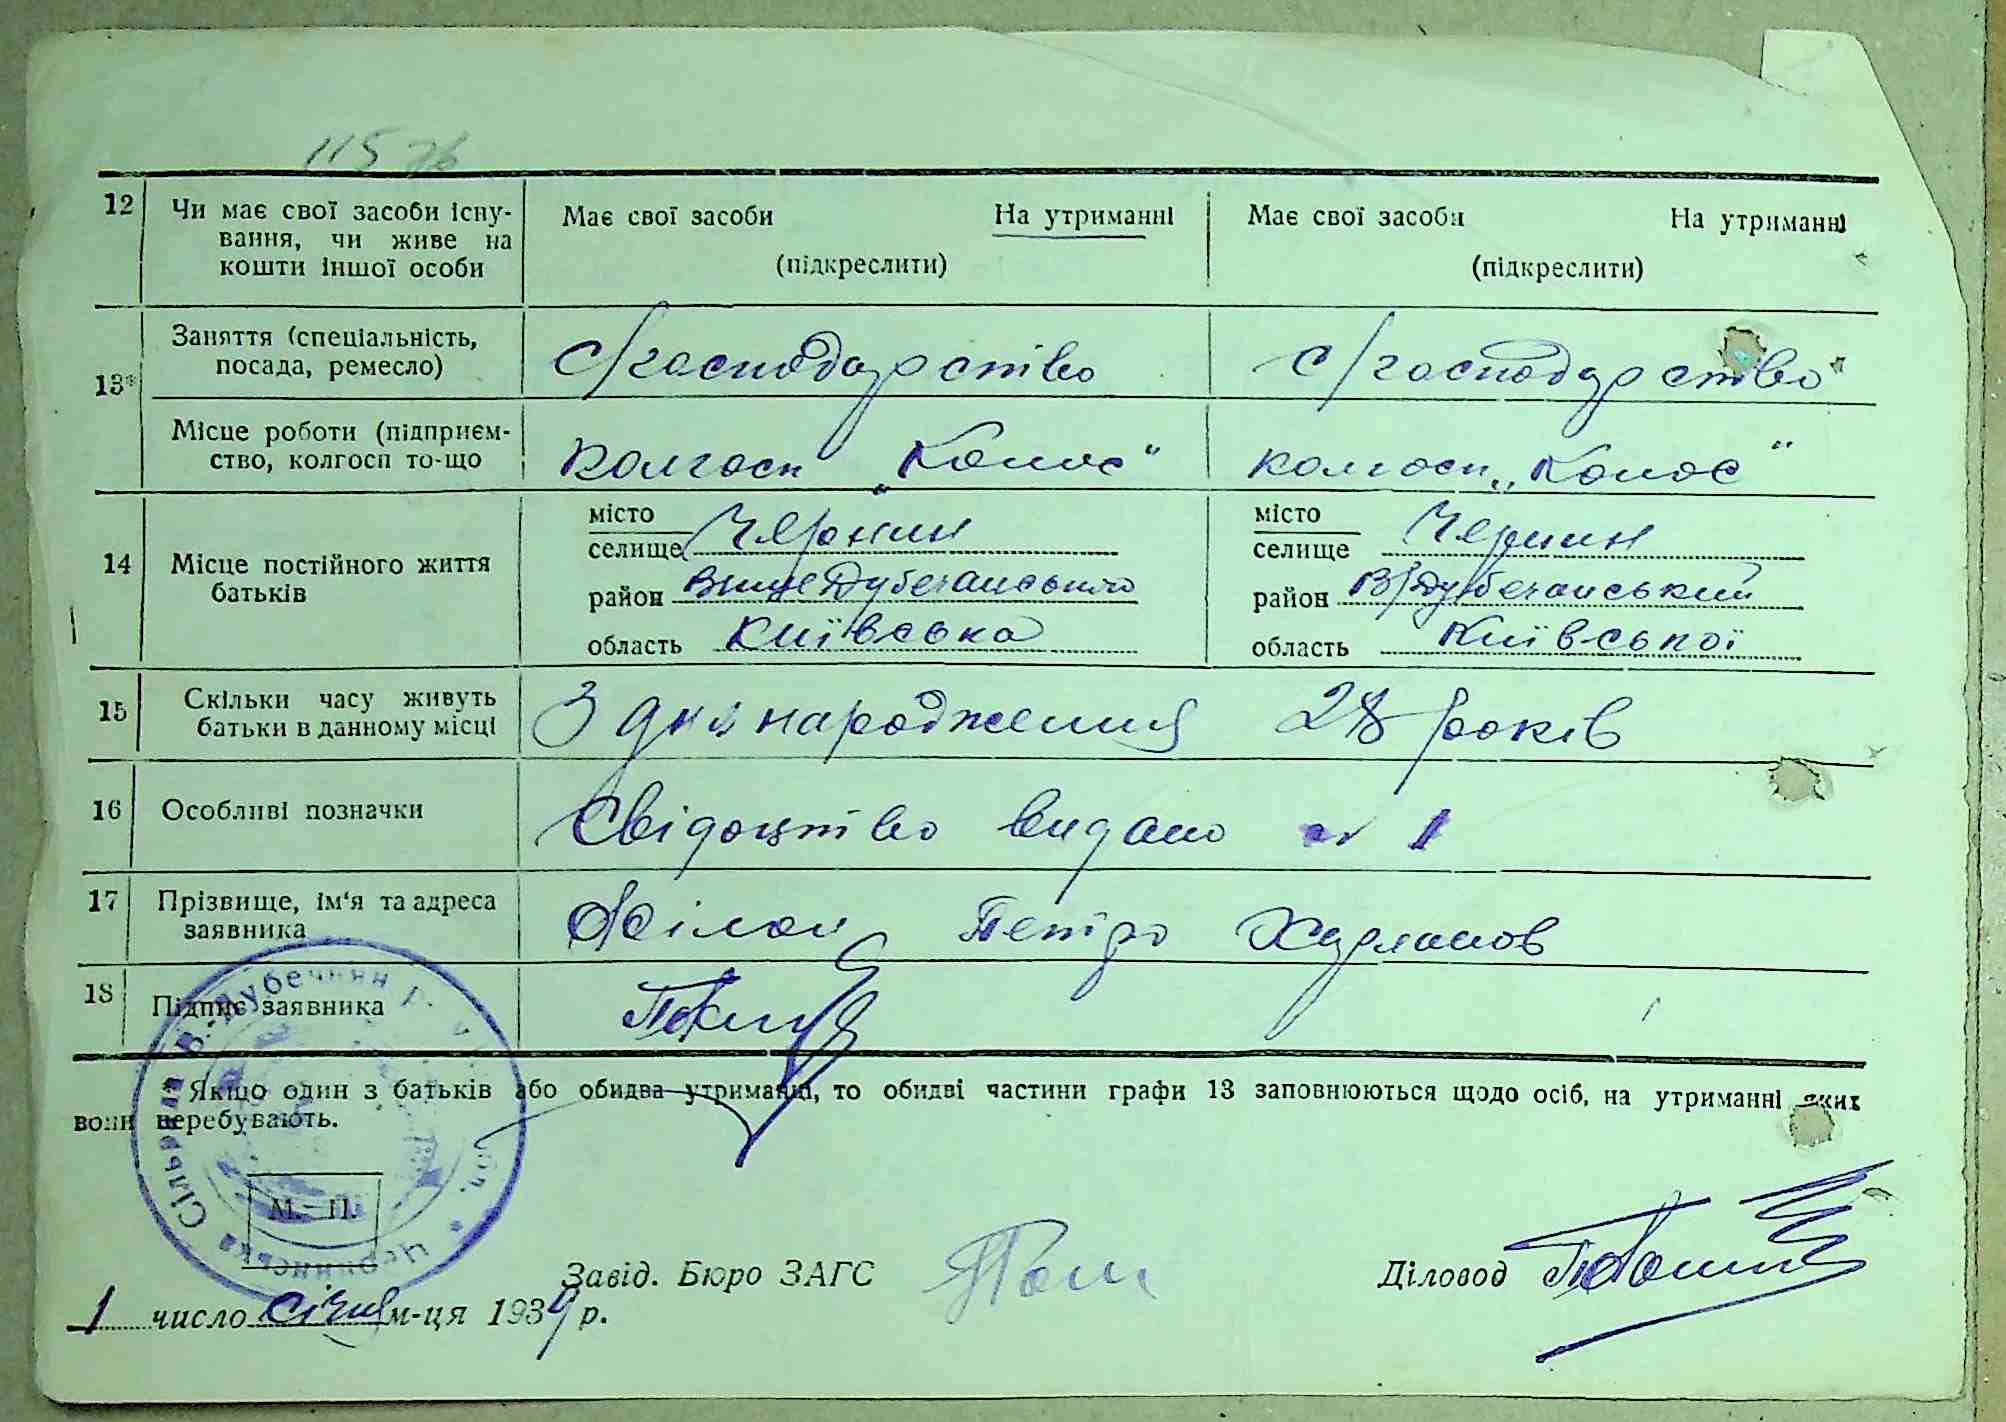 115
12 Чи має свої засоби існу-
вання, чи живе на
кошти іншої особи
Має свої засоби На утриманні
(підкреслити)
Має свої засоби На утриманні
(підкреслити)
13*
Заняття (спеціальність,
посада, ремесло)
с/господарство
с/господарство
Місце роботи (підприєм-
ство, колгосп то-що
колгосп „Колос“
колгосп „Колос“
14 Місце постійного життя
батьків
місто
селище Чернин
район ВищеДубечанського
область Київська
місто
селище Чернин
район В/Дубечанський
область Київської
15 Скільки часу живуть
батьки в данному місці
З дня народження 28 років
16 Особливі позначки
Свідоцтво видано № 1
17 Прізвище, ім‘я та адреса
заявника
Петро
18 Підпис заявника
* Якщо один з батьків або обидва утриманці, то обидві частини графи 13 заповнюються щодо осіб, на утриманні яких
вони перебувають.
М. П.
Сільська В.-Дубечнян р.
Завід. Бюро ЗАГС
Діловод
1 число Січня м-ця 1939 р.